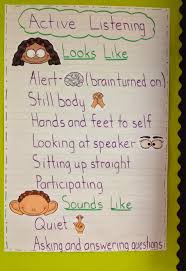 Active Listening
Looks Like
Alert- (brain turned on)
Still body
Hands and feet to self
Looking at speaker
Sitting up straight
Participating
Sounds Like
Quiet
Asking and answering questions